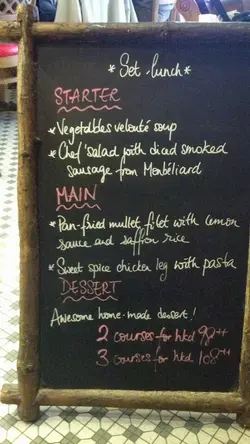 *Set lunch*
STARTER
*Vegetables velouté soup
*Chef' salad with diced smoked
sausage from Monbéliard
MAIN
*Pan-fried mullet filet with lemon
sauce and saffron rice
*Sweet spice chicken leg with pasta
DESSERT
Awesome home-made dessert!
2 courses for hkd 98++
3 courses for hkd 108++